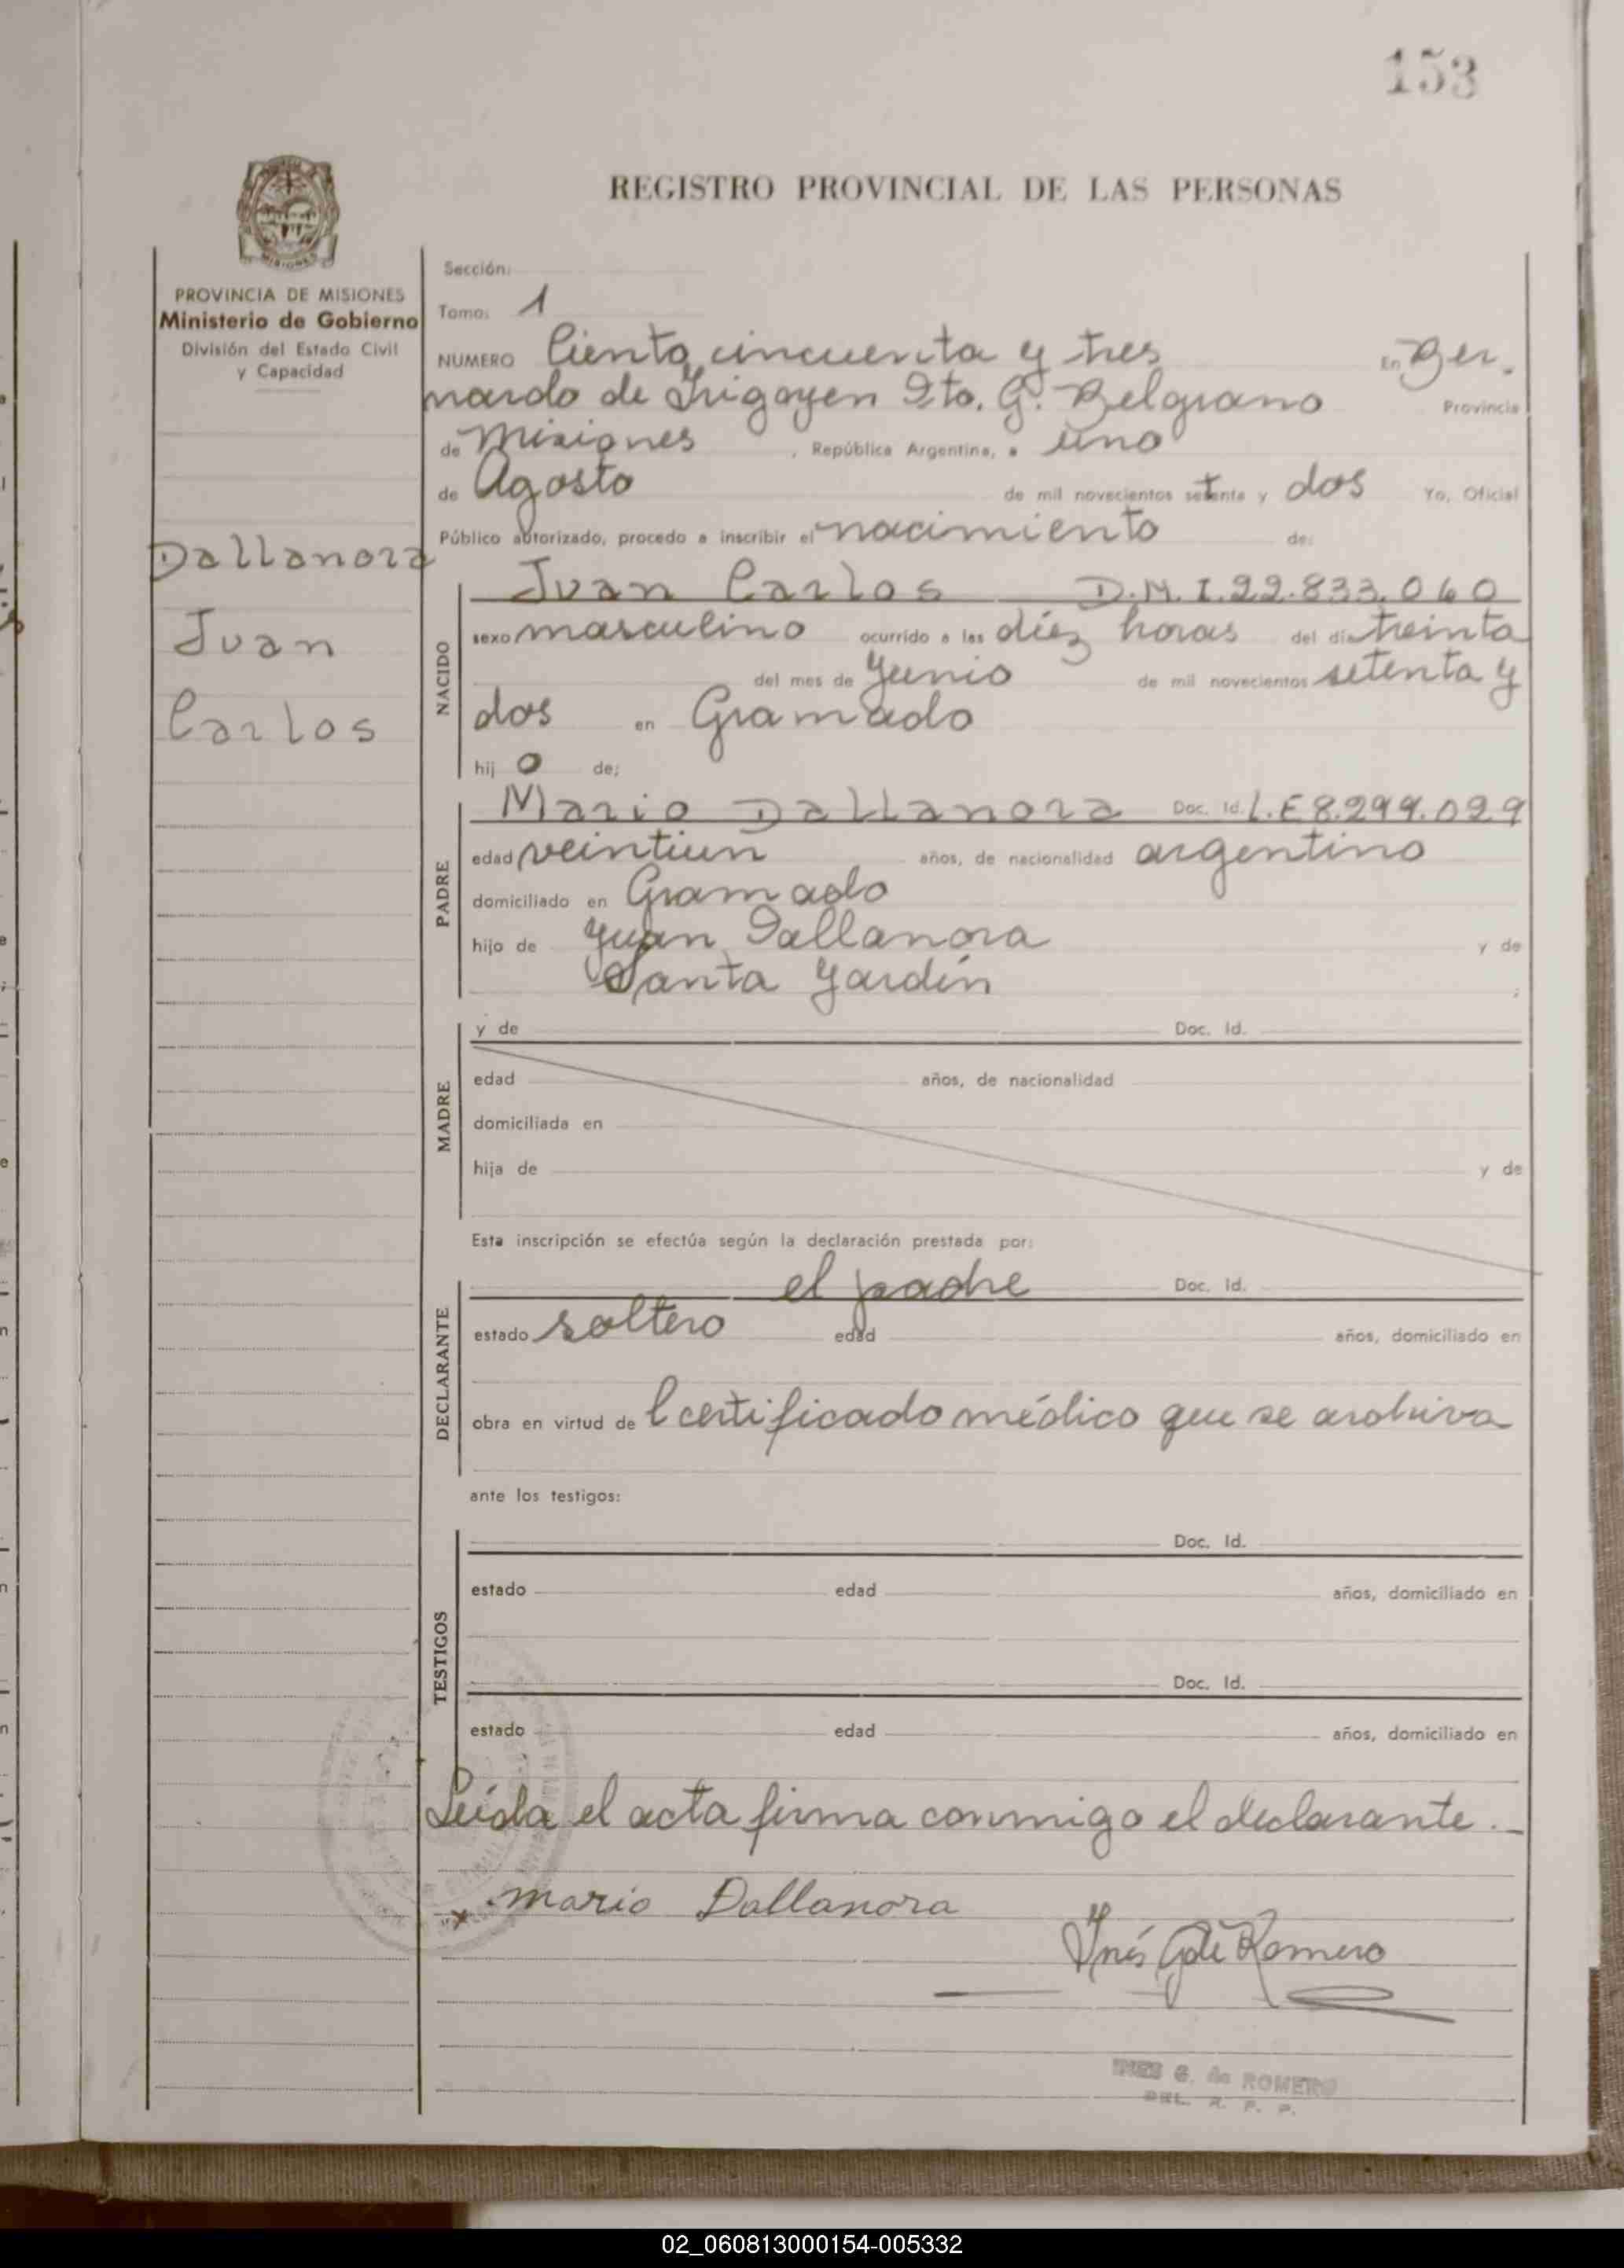 153
REGISTRO PROVINCIAL DE LAS PERSONAS
MISIONES
PROVINCIA DE MISIONES
Ministerio de Gobierno
División del Estado Civil
y Capacidad
Dallanora
Juan
Carlos
Sección:
Tomo: 1
NUMERO Ciento cincuenta y tres En Ber.
nardo de Irigoyen Dto. G. Belgrano Provincia
de Misiones, República Argentina, a uno
de Agosto de mil novecientos setenta y dos Yo, Oficial
Público autorizado, procedo a inscribir el nacimiento de:
NACIDO
Juan Carlos D.N.I. 22.833.060
sexo masculino ocurrido a las diéz horas del día treinta
del mes de Junio de mil novecientos setenta y
dos en Gramado
hij o de;
PADRE
Mario Dallanora Doc. Id. L.E 8.299.029
edad veintiun años, de nacionalidad argentino
domiciliado en Gramado
hijo de Juan Dallanora y de
Santa Jardín ;
MADRE
y de Doc. Id.
edad años, de nacionalidad
domiciliada en
hija de y de
Esta inscripción se efectúa según la declaración prestada por:
DECLARANTE
el padre Doc. Id.
estado soltero edad años, domiciliado en
obra en virtud de l certificado médico que se archiva
ante los testigos:
TESTIGOS
Doc. Id.
estado edad años, domiciliado en
Doc. Id.
estado edad años, domiciliado en
Leída el acta firma conmigo el declarante.-
x Mario Dallanora
Inés G de Romero
INES G. de ROMERO
DEL. R. P. P.
02_060813000154-005332